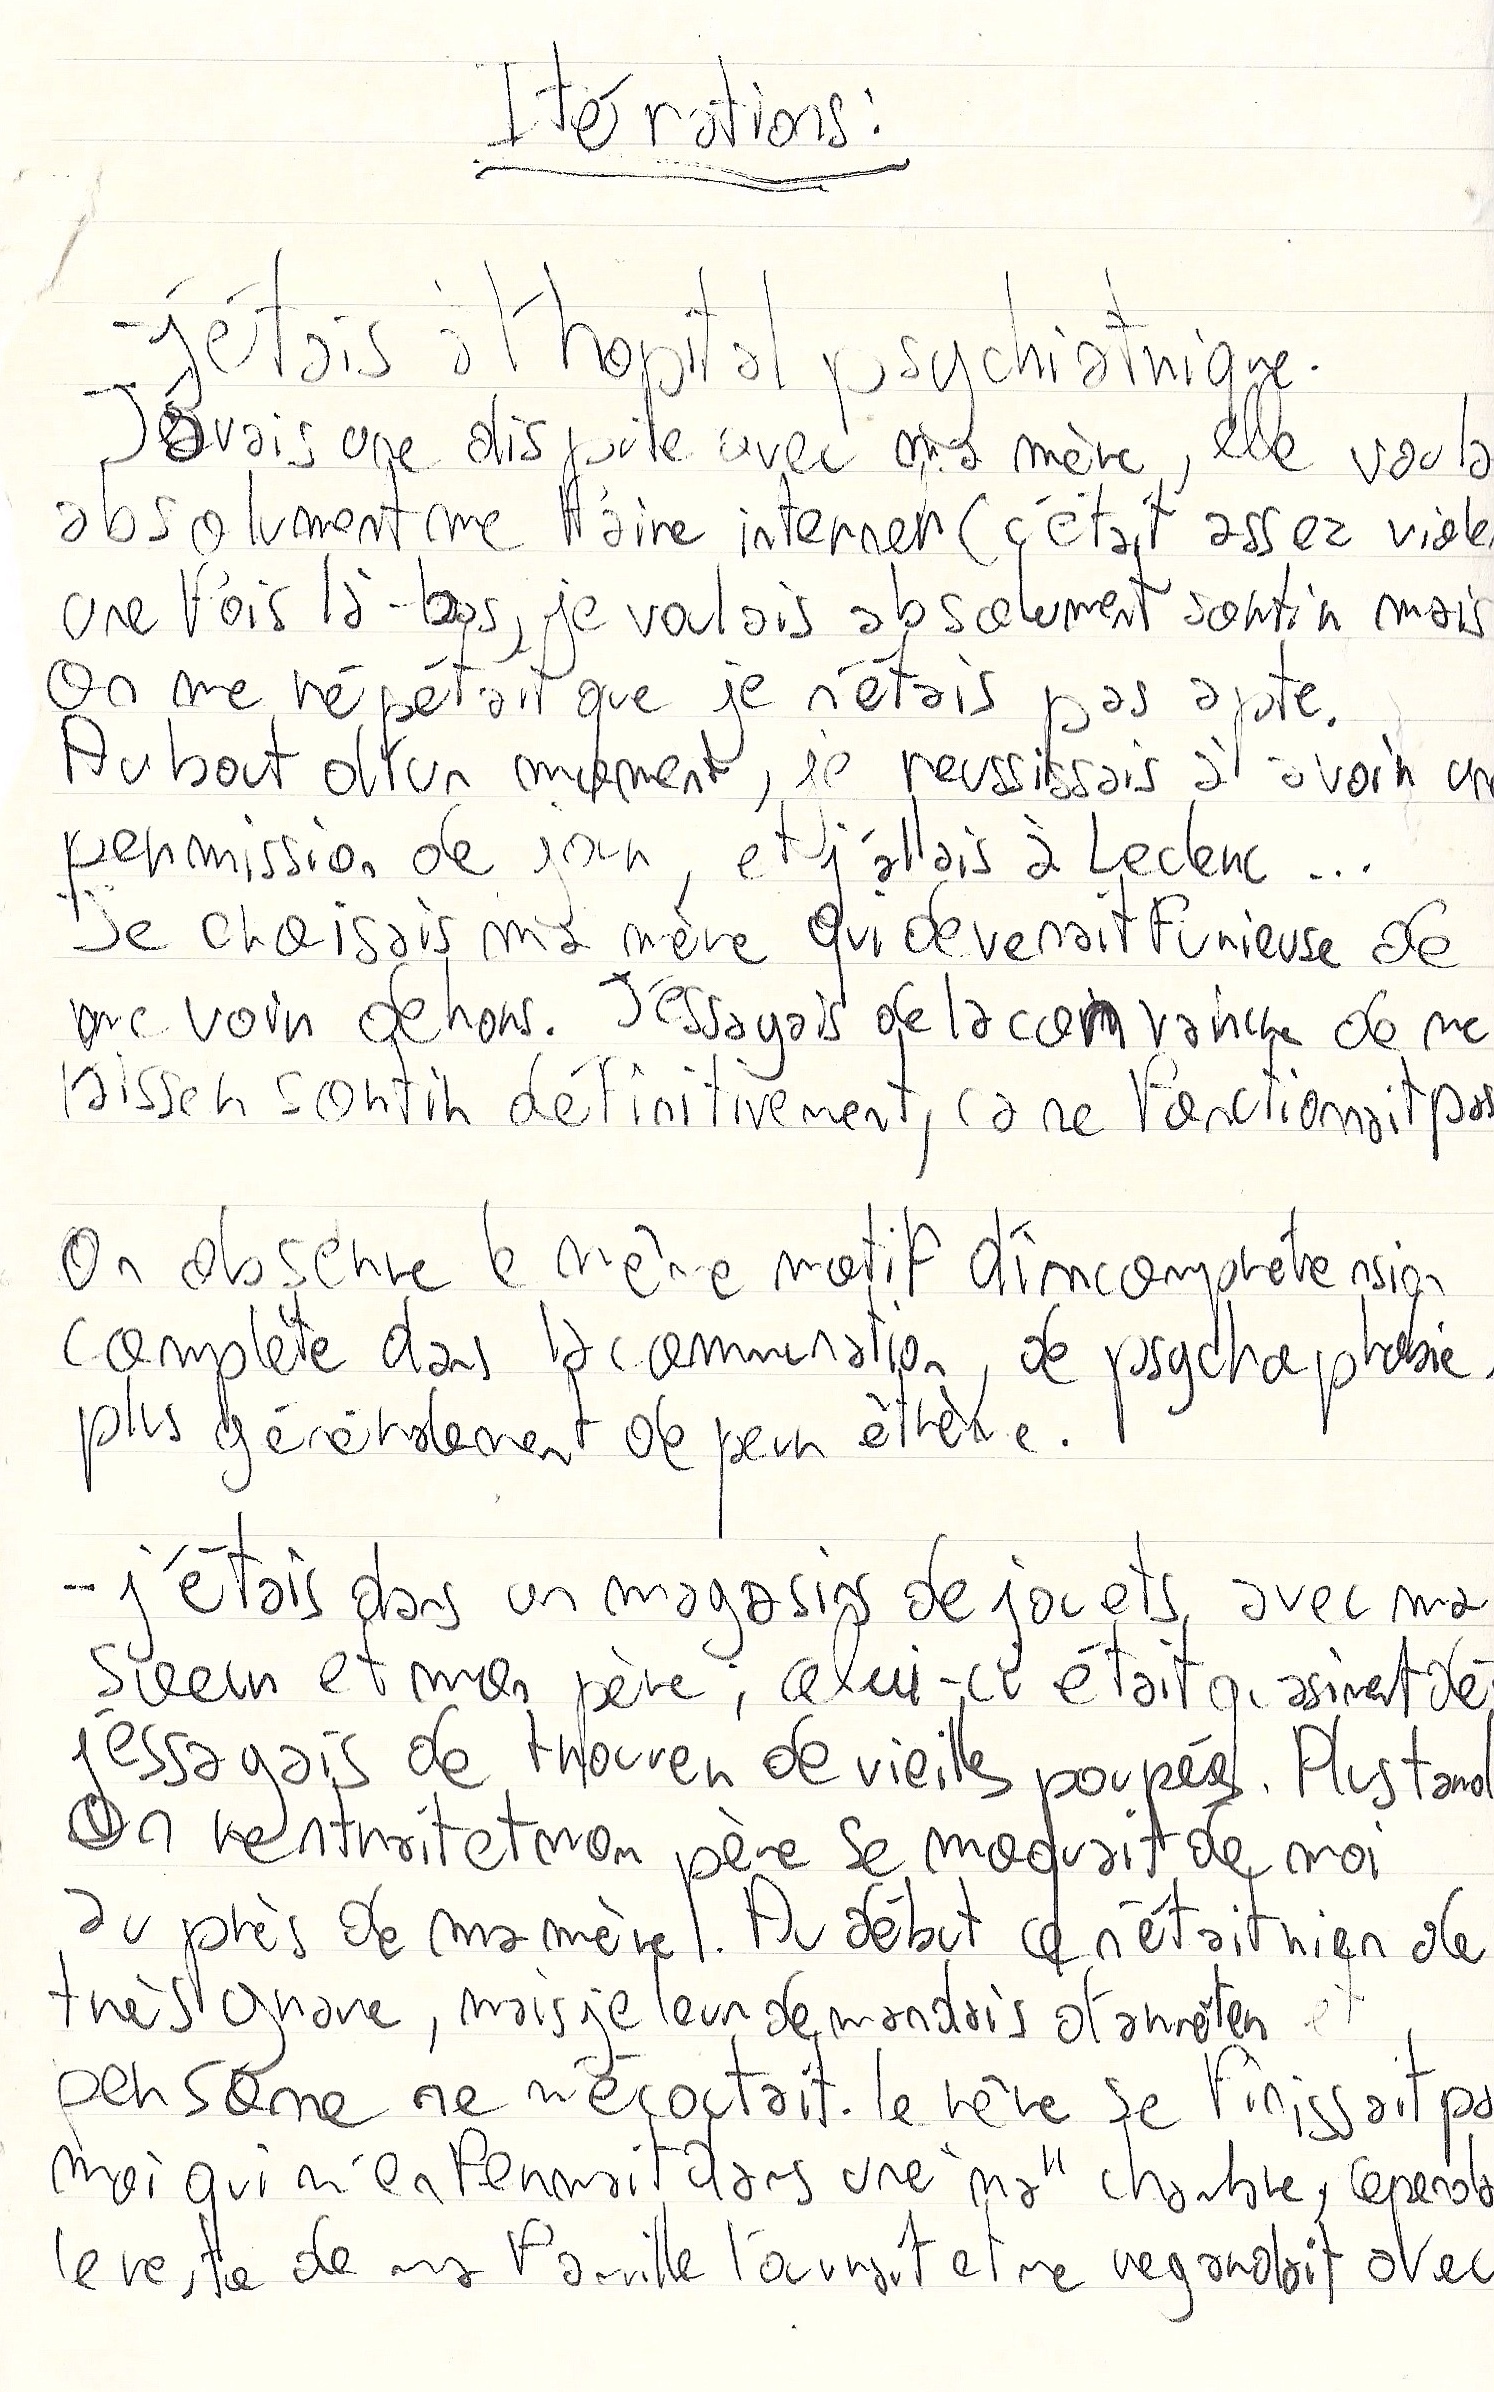 Itérations:
- j'étais à l'hopital psychiatrique.
J'avais une dispute avec ma mère, elle voula
absolument me faire interner (c'était assez violen
une fois là-bas, je voulais absolument sortir mais
on me répétait que je n'étais pas apte.
Au bout d'un moment, je reussissais à avoir un
permission de jour, et j'allais à Leclerc ...
Je choisais ma mère qui devenait furieuse de
me voir dehors. J'essayais de la convaincre de me
laisser sortir définitivement, ca ne fonctionnait pas
On observe le même motif d'incompréhension
complète dans la communation, de psychophobie,
plus généralement de peur
- j'étais dans un magasins de jouets, avec ma
soeur et mon père ; celui-ci était quasiment dé
j'essayais de trouver de vieilles poupées. Plus tard
on rentrait et mon père se moquait de moi
auprès de ma mère. Au début ce n'était rien de
très grave, mais je leur demandais d'arrêter et
personne ne m'écoutait. le rêve se finissait pa
moi qui m'enfermait dans une "ma" chambre, cependa
le reste de ma famille l'ouvrait et me regardait avec